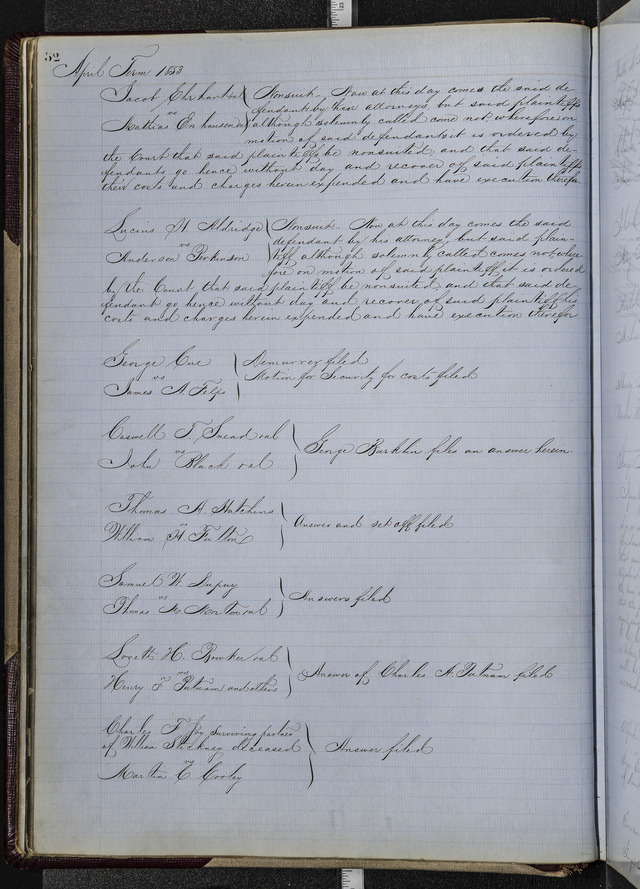 52
April Term 1853
Jacob Ehrhart et al
vs
Mathias
Nonsuit - Now at this day comes the said de-
fendants by their attorneys, but said plaintiffs
although solemnly called come not, wherefore on
motion of said defendants it is ordered by
the Court that said plaintiffs be nonsuited, and that said de-
fendants go hence without day and recover of said plaintiffs
their costs and charges herein expended and have execution therefor
Lucius W. Aldridge
vs
Anderson Perkinson
Nonsuit - Now at this day comes the said
defendant by his attorney, but said plain-
tiff although solemnly called comes not, where-
fore on motion of said plaintiff it is ordered
by the Court, that said plaintiff be nonsuited, and that said de-
fendant go hence without day and recover of said plaintiff his
costs and charges herein expended and have execution therefor
George Cue
vs
James A.
Demurrer filed
Motion for Security for costs filed
Caswell T. Snead et al
vs
John Black et al
George files an answer herein.
Thomas A. Hutchins
vs
William A. Fulton
Answer and set off filed
Samuel W.
vs
Thomas Morton et al
Answers filed
Lovett H. Bowker et al
vs
Henry F. Putnam and others
Answer of Charles A. Putnam filed
Charles T. surviving partner
of William Stickney deceased
vs
Martin C. Cooley
Answer filed